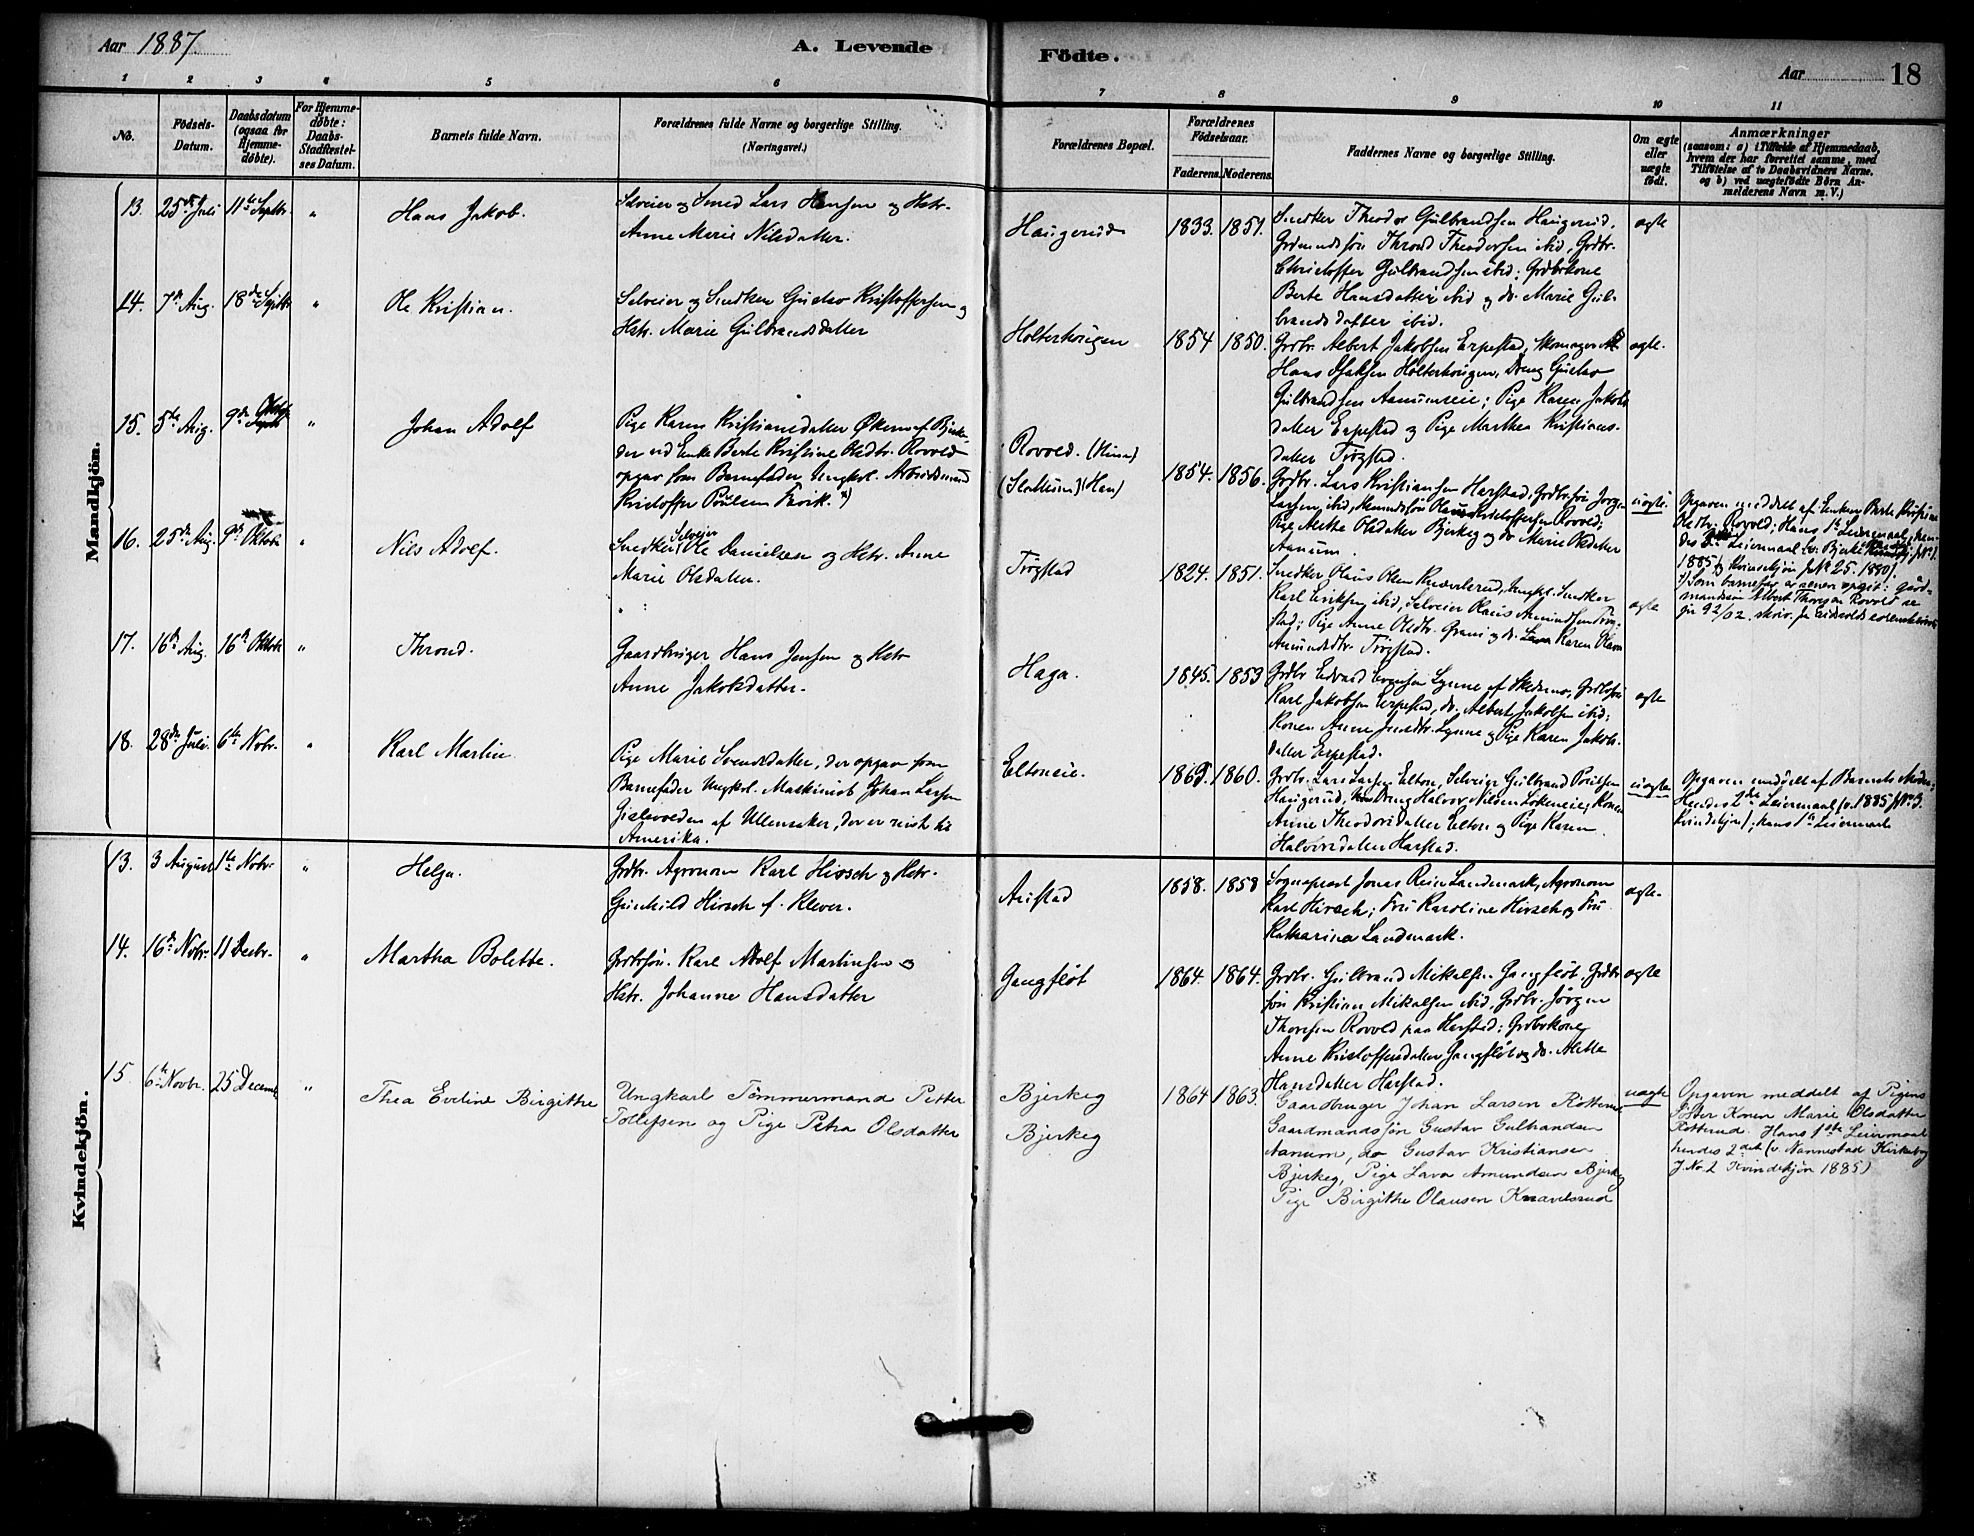 Aar 1887.
A. Levende
Födte.
Aar
18
1 2 3 4 5 6
7 8 9 10 11
No.
Födsels-
Datum.
Daabsdatum
(ogsaa for
Hjemme-
döbte).
For Hjemme-
döbte:
Daabs-
Stadfæstel-
ses Datum.
Barnets fulde Navn.
Forældrenes fulde Navne og borgerlige Stilling.
(Næringsvei.)
Forældrenes Bopæl.
Forældrenes
Födselsaar.
Faderens. Moderens.
Faddernes Navne og borgerlige Stilling.
Om ægte
eller
uægte
födt.
Anmærkninger
(saasom: a) i Tilfælde af Hjemmedaab,
hvem der har forrettet samme, med
Tilföielse af to Daabsvidners Navne.
og b) ved uægtefödte Börn An-
melderens Navn m. V.)
Mandkjön.
13. 25de Juli 11te Septbr. " Hans Jakob.
Selveier og Smed Lars Hansen og Hstr.
Anne Marie Nilsdatter.
Haugerud 1833. 1851.
Snedker Theodor Gulbrandsen Haugerud,
Grdmandssön Thrond Theodorsen ibid, Grdbr.
Christoffer Gulbrandsen ibid; Grdbrkone
Berte Hansdatter ibid og do. Marie Gul-
brandsdatter ibid.
ægte
14. 7de Aug. 18de Septbr. " Ole Kristian.
Selveier og Snedker Gustav Kristoffersen og
Hstr. Marie Gulbrandsdatter
Holterhaugen 1854 1850.
Grdbr. Albert Jakobsen Erpestad, Skomager
Hans Isaksen Holterhaugen, Dreng Gustav
Gulbrandsen Aanumseie; Pige Karen Jakobs
datter Erpestad og Pige Marthea Kristians-
datter Trögstad.
ægte.
15. 5te Aug. 9de Oktob. " Johan Adolf
Pige Karen Kristiansdatter Økern af Bjerke,
der ved Enke Berte Kristine Olsdtr. Rovold
opgav som Barnefader Ungkarl. Arbeidsmand
Kristoffer Poulsen Brik. x)
Rovold. (Hun)
(Slattum) (Han)
1854. 1856.
Grdbr. Lars Kristiansen Harstad, Grdbrsön Jörgen
Larsen, ibid, Kristoffersen Rovold;
Pige Olsdatter Bjerkeg og do Marie Olsdatter
Aanum.
uægte.
Opgaven meddelt af Enken Berte Kristine
Olsdtr. Rovold; Hans 1te Leiermaal, hen-
des Leiermaal (v. Bjerke
1885 og Kvindekjön J.No 25. 1880).
x) Som barnefar er senere opgit: gård-
mandssøn Albert Thorsen Rovold se
jr 92/02. skriv. fra Eidsvolds sorenskriveri
16. 25de Aug. 9de Oktob. " Nils Adolf.
Selveier
Snedker Ole Danielsen og Hstr. Anne
Marie Olsdatter.
Trögstad 1824. 1851.
Snedker Olaus Olsen Knavelsrud, Ungkl. Snedker
Karl Eriksen ibid, Selveier Olaus Amundsen Trög-
stad; Pige Anne Olsdtr. og do. Karen Olava
Amundsdtr. Trögstad.
ægte
17. 16de Aug. 16de Oktob. " Thrond.
Gaardbruger Hans Jensen og Hstr
Anne Jakobsdatter.
Haga. 1845. 1853
Grdbr Edvard Evensen Lynne af Skedsmo, Grdbrsön
Karl Jakobsen Erpestad, do. Albert Jakobsen ibid;
Konen Anne Jensdtr. Lynne og Pige Karen Jakobs-
datter Erpestad.
ægte
18. 28de Juli. 6te Nobr. " Karl Martin
Pige Marie Svendsdatter, der opgav som
Barnefader Ungkl. Maskinist Johan Larsen
Gislevolden af Ullensaker, der er reist til
Amerika.
Eltoneie. 1865. 1860.
Grdbr. Lars Larsen Elton, Selveier Gulbrand Poulsen
Haugerud, Dreng Halvor Nilsen Lökeneie; Konen
Anne Theodorsdatter Elton og Pige Karen
Halvorsdatter Harstad.
uægte
Opgaven meddelt af Barnets Moder;
Hendes 2de Leiermaal (v. 1885 No 3.
Kvindekjön); hans 1te Leiermaal
Kvindekjön.
13. 3 August 1te Nobr. " Helga.
Grdbr. Agronom Karl Hirsch og Hstr.
Gunhild Hirsch f. Klever.
Austad 1858. 1858
Sogneprest Jonas Rein Landmark, Agronom
Karl Hirsch; Fru Karoline Hirsch og Fru
Katharina Landmark.
ægte.
14. 16de Nobr. 11 Decbr. " Martha Bolette.
Grdbrsön. Karl Adolf Martinsen og
Hstr. Johanne Hansdatter
Gangflöt 1864. 1864.
Grdbr. Gulbrand Mikalsen Gangflöt, Grdbr
sön Kristian Mikalsen ibid, Grdbr. Jörgen
Thorsen Rovold paa Harstad; Grdbrkone
Anne Kristoffersdatter Gangflöt og do. Alette
Hansdatter Harstad.
ægte
15 6te Novbr. 25 Decemb " Thea Eveline Birgithe
Ungkarl Tömmermand Petter
Tollefsen og Pige Petra Olsdatter
Bjerkeg
Bjerkeg
1864 1863.
Gaardbruger Johan Larsen Rotterud,
Gaardmandssön Gustav Gulbrandsen
Aanum, do Gustav Kristiansen
Bjerkeg, Pige Lava Amundsen Bjerkeg
Pige Birgithe Olausen Knavelsrud
uægte
Opgaven meddelt af Pigens
Söster Konen Marie Olsdatter
Rotterud. Hans 1ste Leiermaal
hendes 2det (v. Nannestad Kirkebog
J. No. 2 Kvindekjön 1885)